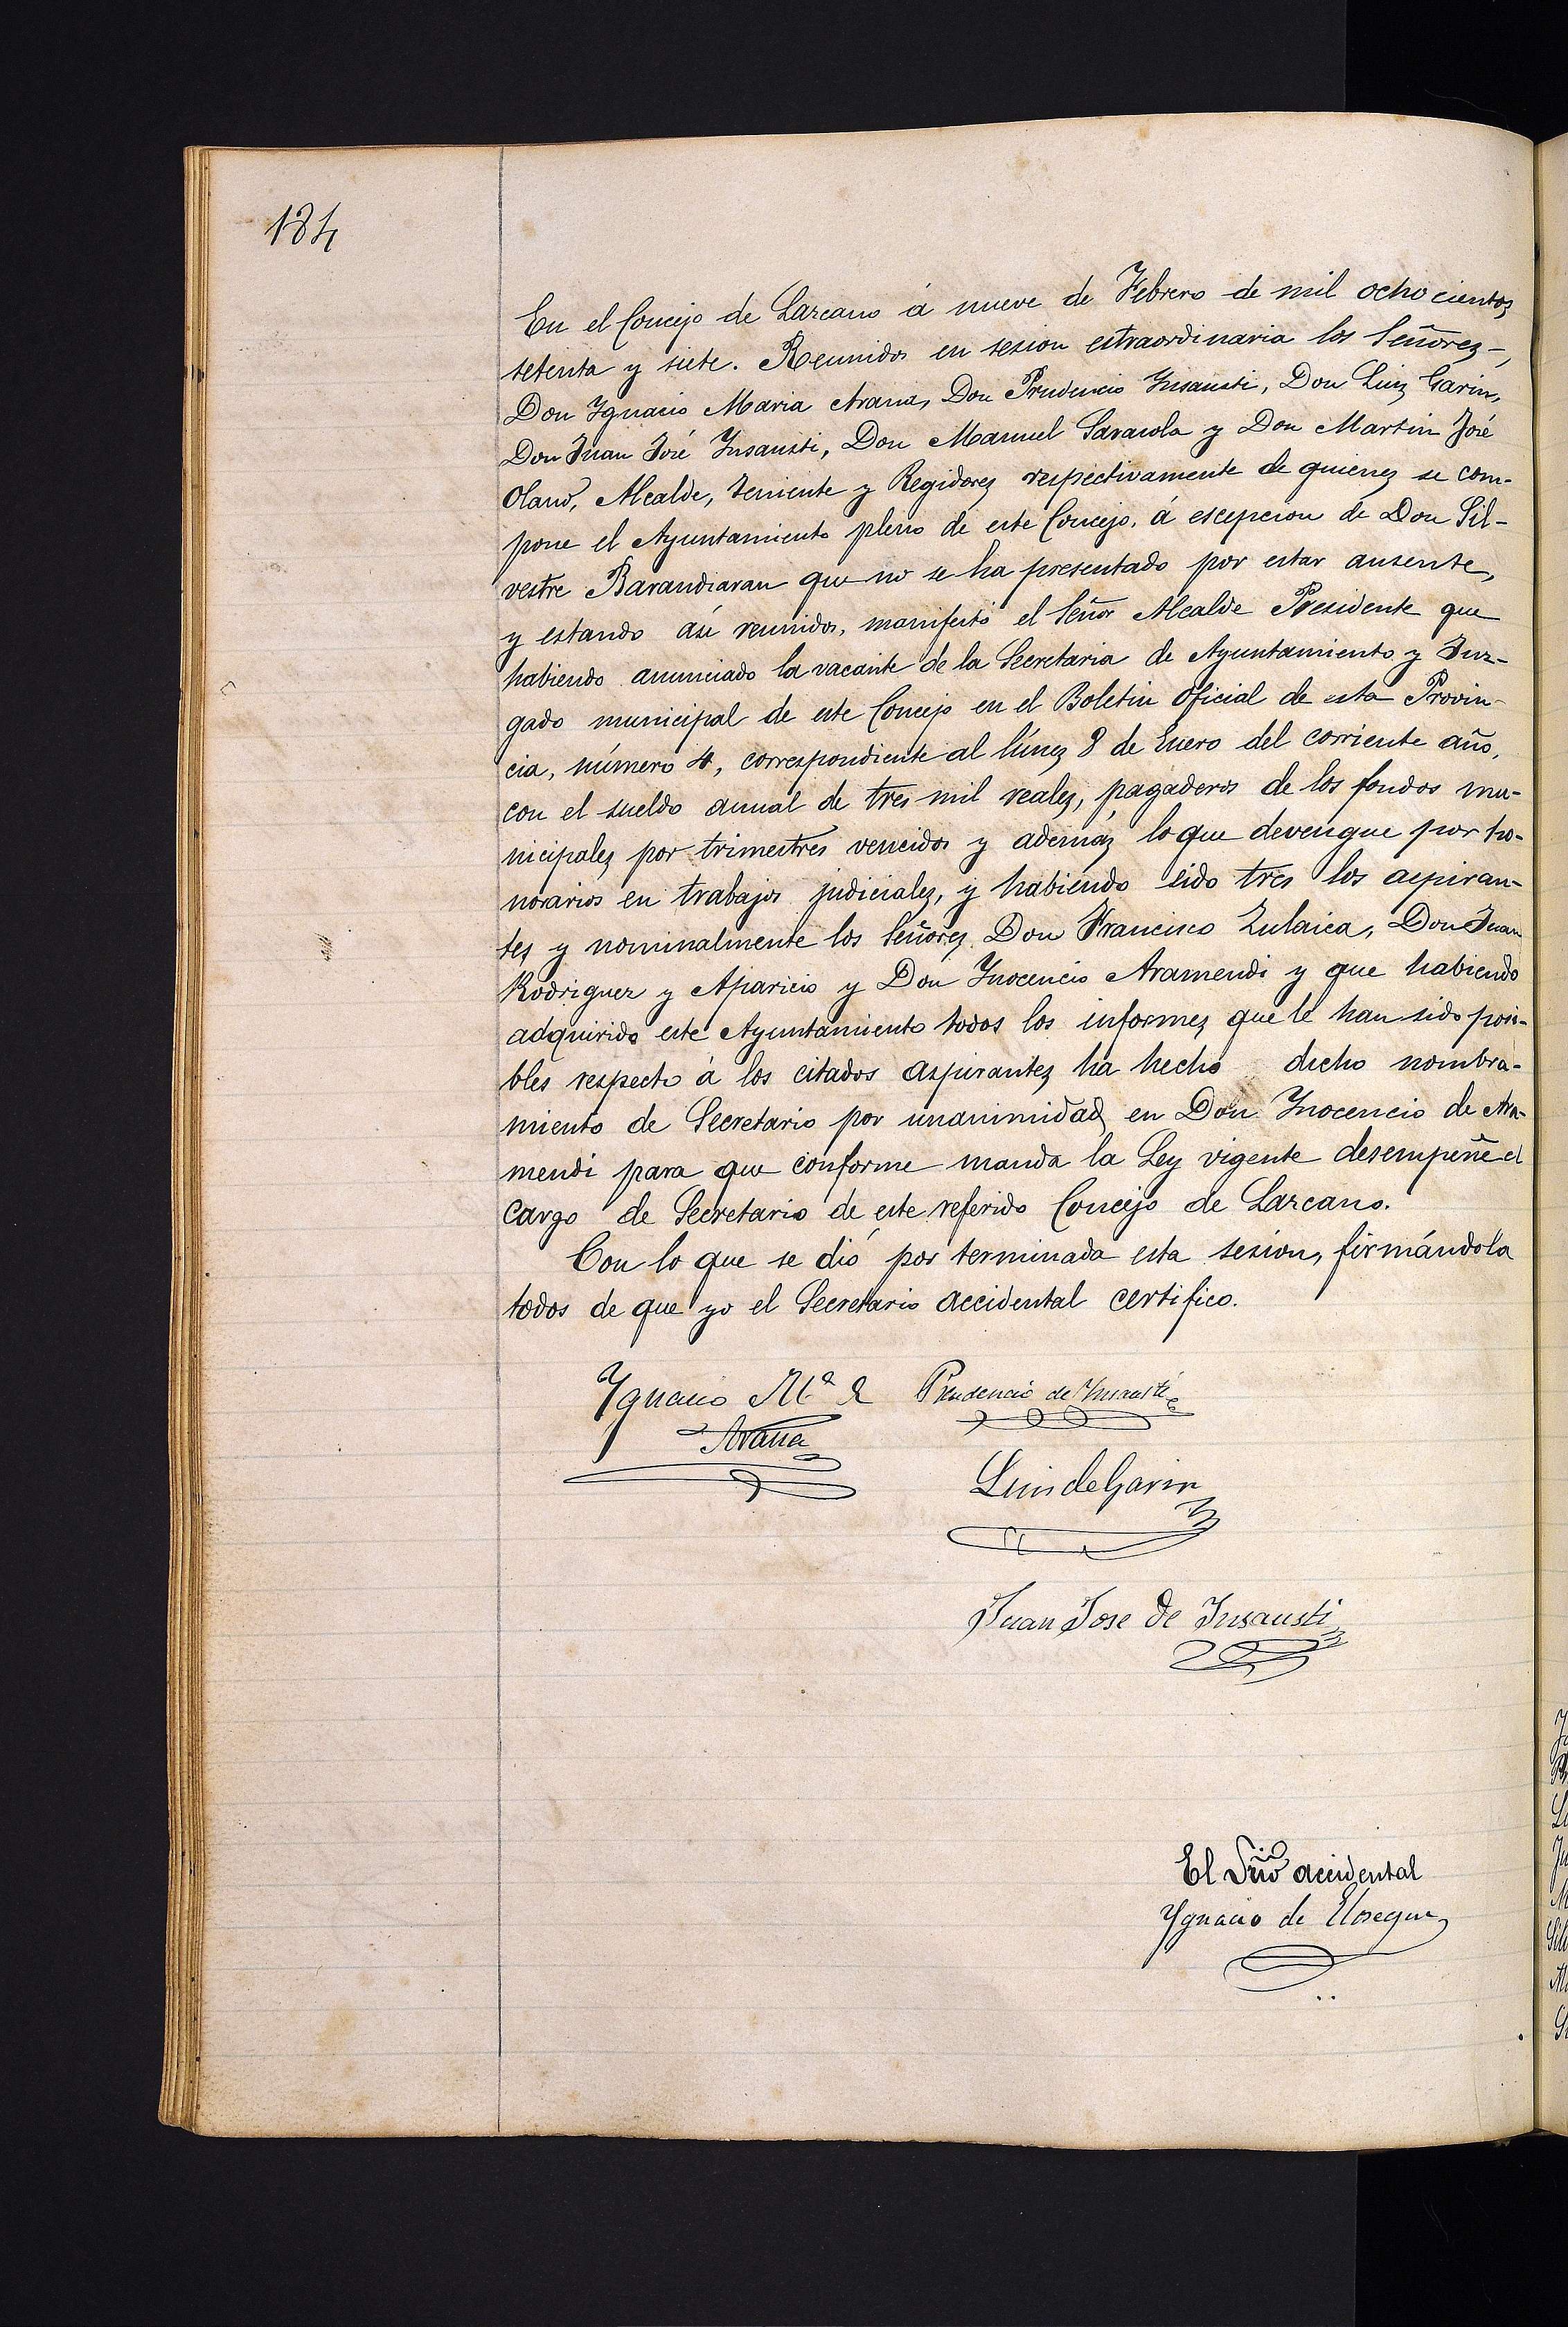 184
En el Concejo de Lazcano á nueve de Febrero de mil ochocientos
setenta y siete. Reunidos en sesion estraordinaria los Señores,
Don Ygnacio Maria Arana, Don Prudencio Ynsausti, Don Luis Garin,
Don Juan José Ynsausti, Don Manuel Sarasola y Don Martin José
Olano, Alcalde, Teniente y Regidores respectivamente de quienes se com-
pone el Ayuntamiento pleno de este Concejo, á escepcion de Don Sil-
vestre Barandiaran que no se ha presentado por estar ausente,
y estando así reunidos, manifestó el Señor Alcalde Presidente que
habiendo anunciado la vacante de la Secretaria de Ayuntamiento y Juz-
gado municipal de este Concejo en el Boletin oficial de esta Provin-
cia, número 4, correspondiente al lúnes 8 de Enero del corriente año,
con el sueldo anual de tres mil reales, pagaderos de los fondos mu-
nicipales por trimestres vencidos y además lo que devengue por ho-
norarios en trabajos judiciales, y habiendo sido tres los aspiran-
tes y nominalmente los Señores Don Francisco Zulaica, Don Juan
Rodriguez y Aparicio y Don Ynocencio Aramendi y que habiendo
adquirido este Ayuntamiento todos los informes que le han sido posi-
bles respecto á los citados aspirantes ha hecho dicho nombra-
miento de Secretario por unanimidad en Don Ynocencio de Ara-
mendi para que conforme manda la Ley vigente desempeñe el
cargo de Secretario de este referido Concejo de Lazcano.
Con lo que se dió por terminada esta sesion, firmándola
todos de que yo el Secretario accidental certifico.
Ygnacio Mª de Prudencio de Ynsausti
Arana
Luis de Garin
Juan Jose de Ynsausti
El Srio accidental
Ygnacio de Elosegui